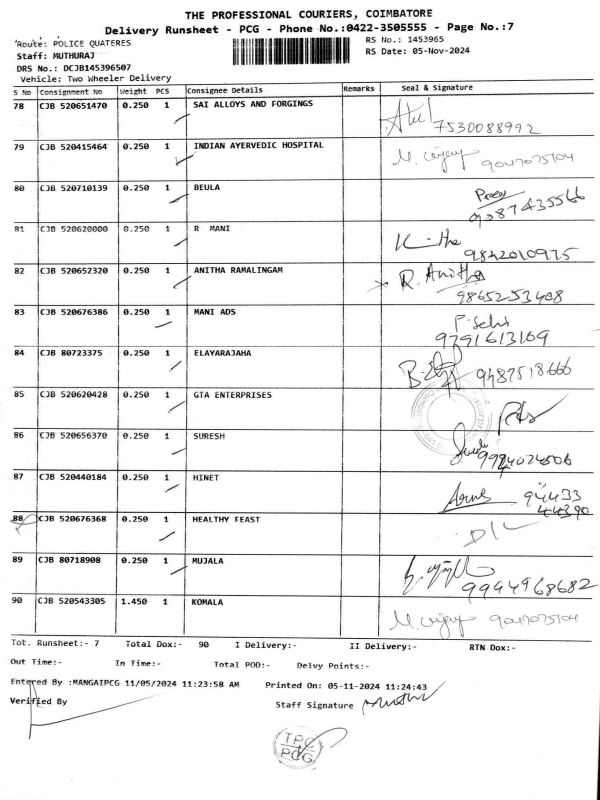 THE PROFESSIONAL COURIERS, COIMBATORE
Delivery Runsheet - PCG - Phone No.:0422-3505555 - Page No.:7
Route: POLICE QUATERES RS No.: 1453965
Staff: MUTHURAJ RS Date: 05-Nov-2024
DRS No.: DCJB145396507
Vehicle: Two Wheeler Delivery
S No Consignment No Weight PCS Consignee Details Remarks Seal & Signature
78 CJB 520651470 0.250 1 SAI ALLOYS AND FORGINGS
7530088992
79 CJB 520415464 0.250 1 INDIAN AYERVEDIC HOSPITAL
80 CJB 520710139 0.250 1 BEULA
81 CJB 520620000 0.250 1 R MANI
9842010975
82 CJB 520652320 0.250 1 ANITHA RAMALINGAM
R. Anitha
9865253408
83 CJB 520676386 0.250 1 MANI ADS
9791613169
84 CJB 80723375 0.250 1 ELAYARAJAHA
9487518666
85 CJB 520620428 0.250 1 GTA ENTERPRISES
86 CJB 520656370 0.250 1 SURESH
9994024506
87 CJB 520440184 0.250 1 HINET
94433
44390
88 CJB 520676368 0.250 1 HEALTHY FEAST
89 CJB 80718908 0.250 1 MUJALA
9944968682
90 CJB 520543305 1.450 1 KOMALA
Tot. Runsheet:- 7 Total Dox:- 90 I Delivery:- II Delivery:- RTN Dox:-
Out Time:- In Time:- Total POD:- Delvy Points:-
Entered By :MANGAIPCG 11/05/2024 11:23:58 AM Printed On: 05-11-2024 11:24:43
Verified By Staff Signature
TPC
PCG